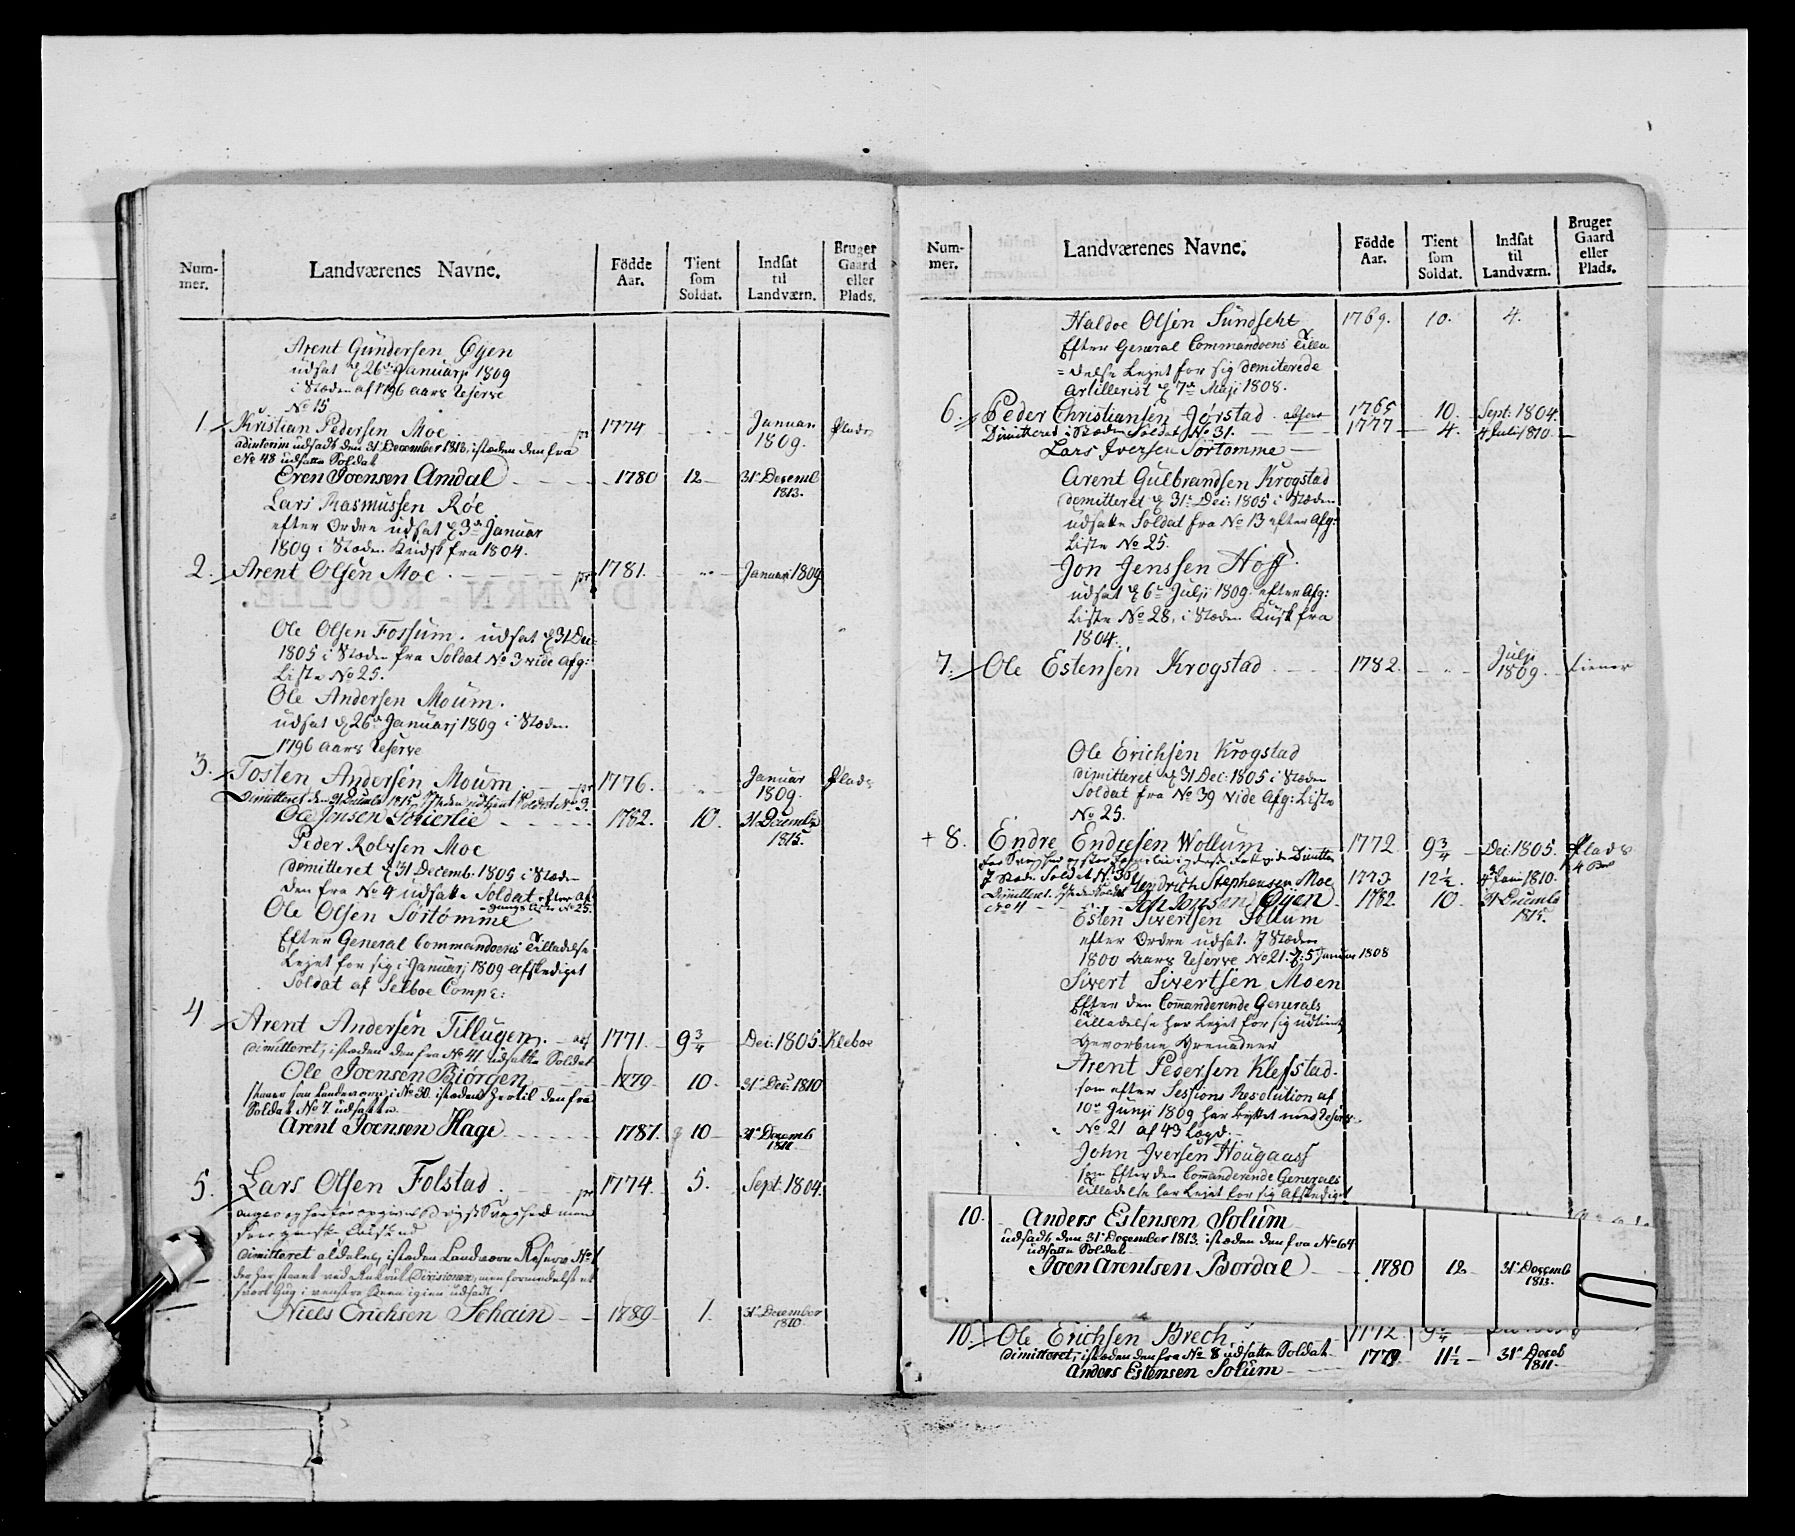 Num-
mer.
Landværenes Navne.
Födde
Aar.
Tient
som
Soldat.
Indsat
til
Landværn.
Bruger
Gaard
eller
Plads.
Arent Gundersen Øyen
udsat d 26 Januarj 1809
i Stæden af 1796 aars Reserve
No 15
1 Kristian Pedersen Moe pr 1774 Januar 1809. Plads
adinterim udsadt den 31 December 1813, istæden den fra
No 48 udsatte Soldat
Even Joensen Amdal 1780 12 31 Decemb 1813.
Lars Rasmussen Røe
efter Ordre udsat d 3 Januar
1809 i Stæden Kudsk fra 1804.
2. Arent Olsen Moe pr 1781. Januari 1809
Ole Olsen Fossum. udsat d 31 Dec:
1805 i Stæden fra Soldat No 3 vide Afg:
Liste No 25.
Ole Andersen Moum.
udsat d 26 Januarj 1809 i Stæden
1796 aars Reserve
3. Tosten Andersen Moum pr 1776. Januar 1809. Plads
Dimitteret den 31 Decemb 1815, Isteden udtient Soldat No 3.
Ole Jonsen 1782. 10. 31 Decembr 1815.
Peder Rolvsen Moe
demitteret d 31 Decemb. 1805 i Stæde
den fra No 4 udsatte Soldat efter Af-
gangs Liste No 25.
Ole Olsen Sørtømme
Efter General Commandoens Tilladelse
Lejet for sig i Januarj 1809 afskediget
Soldat af Selboe Comps:
4 Arent Andersen Tillugen. afs 1771. 9 3/4 Dec: 1805. Kleboe
dimitteret, istæden den fra No 41 udsatte Soldat
Ole Joensen Biörgen 1779 10. 31 Dec: 1810
staaer som Landeværn i No 30. istædens hertil den fra
Soldat No 7 udsatte
Arent Joensen Hage 1787. 10 31 Decemb 1811
5. Lars Olsen Folstad pr 1774. 5. Sept. 1804.
dimitteret aldeles, istæden Landværn Reserv No 1
der har staaet ved Rekrut Divisionen, men formedelst et
svart Hug i venstre Keen igien udsadt
Niels Erichsen Schain 1789 1. 31 December 1810
Num-
mer.
Landværenes Navne.
Födde
Aar.
Tient
som
Soldat.
Indsat
til
Landværn.
Bruger
Gaard
eller
Plads.
Haldoe Olsen Sundseht 1769. 10. 4.
Efter General Commandoens Tilla
=delse Lejet for sig demiterede
Artillerist d 7 Maji 1808.
6. Peder Christiansen Jørstad 1765 10. Sept: 1804.
Dimitteret i Stæden Soldat No 31. 1777 4. 4 Juli 1810
Lars Iversen Sørtømme
Arent Gulbrandsen Krogstad
demitteret d 31 Dec: 1805 i Stæden
udsatte Soldat fra No 13 efter Afg:
Liste No 25.
Jon Jenssen Hoff.
udsat d 6 Julji 1809. efter Afg:
Liste No 28, i Stæden Kusk fra
1804.
7. Ole Estensen Krogstad 1782. Julji 1809. tiener
Ole Erichsen Krogstad
dimitteret d 31 Dec: 1805 i Stæden
Soldat fra No 39 vide Afg: Liste
No 25.
+ 8. Endre Endresen Wollum 1772 9 3/4 Dec: 1805. Plads
I Stæde Soldat No 36 Hendrich Stephensen Moe 1773 12 1/2 4 Juni 1810.
Dimitteret. Isteden Soldat
No 4 Joh Jonsen Øyen 1782 10. 31 Decemb 1815.
Esten Sivertsen Sollum
efter Ordre udsat. I Stæden
1800 Aars Reserve No 21. d: 5 Januar 1808
Sivert Sivertsen Moen
Efter den Commanderende Generals
tilladelse har Lejet for sig udtient
Hevorbne Grenadeer
Arent Pedersen Klefstad
som efter Sessions Resolution af
10 Junji 1809 har byttet med Reserv
No 21 af 43 Lægd.
John Iversen Hougaass
som Efter den Commanderende Generals
tilladelse har Lejet for sig Afskediget
10. Anders Estensen Solum
udsadt, den 31 December 1813. istæden den fra No 64
udsatte Soldat
Joen Arentsen Bordal 1780 12 31 Decemb 1813.
10. Ole Erichsen Brech 1772 9 3/4
dimitteret, istæden den fra No 8 udsatte Soldat
Anders Estensen Solum 1779. 11 1/2 31 Deceb 1811.